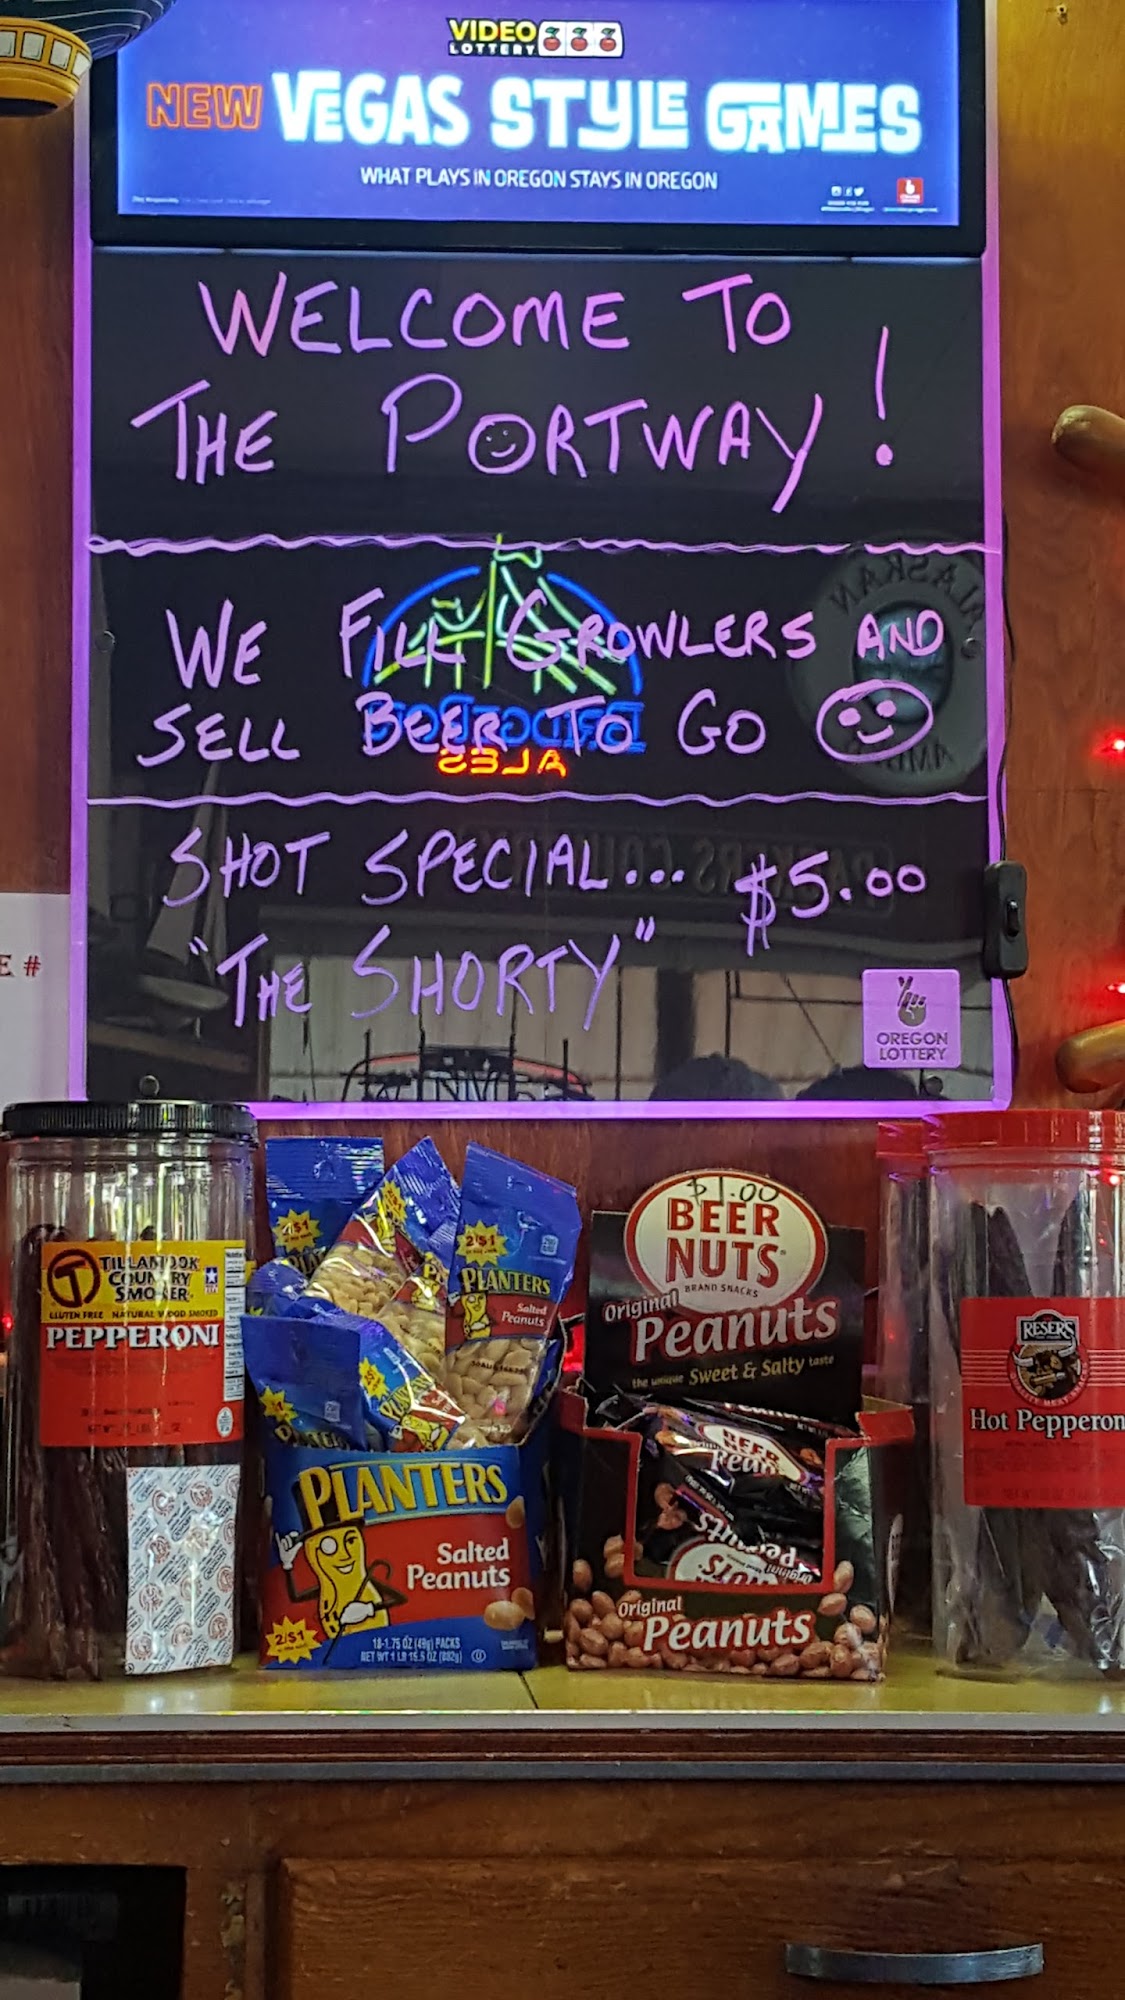 VIDEO
LOTTERY
NEW VEGAS STYLE GAMES
WHAT PLAYS IN OREGON STAYS IN OREGON
WELCOME TO
THE PORTWAY!
WE FILL GROWLERS AND
SELL BEER TO GO
SHOT SPECIAL... $5.00
"THE SHORTY"
OREGON
LOTTERY
ALASKAN
BRIDGEPORT
ALES
E #
TILLAMOOK
COUNTRY
SMOKER
GLUTEN FREE NATURAL WOOD SMOKED
PEPPERONI
2/$1
2/$1
PLANTERS
Salted
Peanuts
PLANTERS
Salted
Peanuts
2/$1
18-1.75 OZ (49g) PACKS
NET WT 1 LB 15.5 OZ (892g)
$1.00
BEER
NUTS
BRAND SNACKS
Original
Peanuts
the unique Sweet & Salty taste
BEER
Original
Peanuts
RESER'S
Hot Pepperon